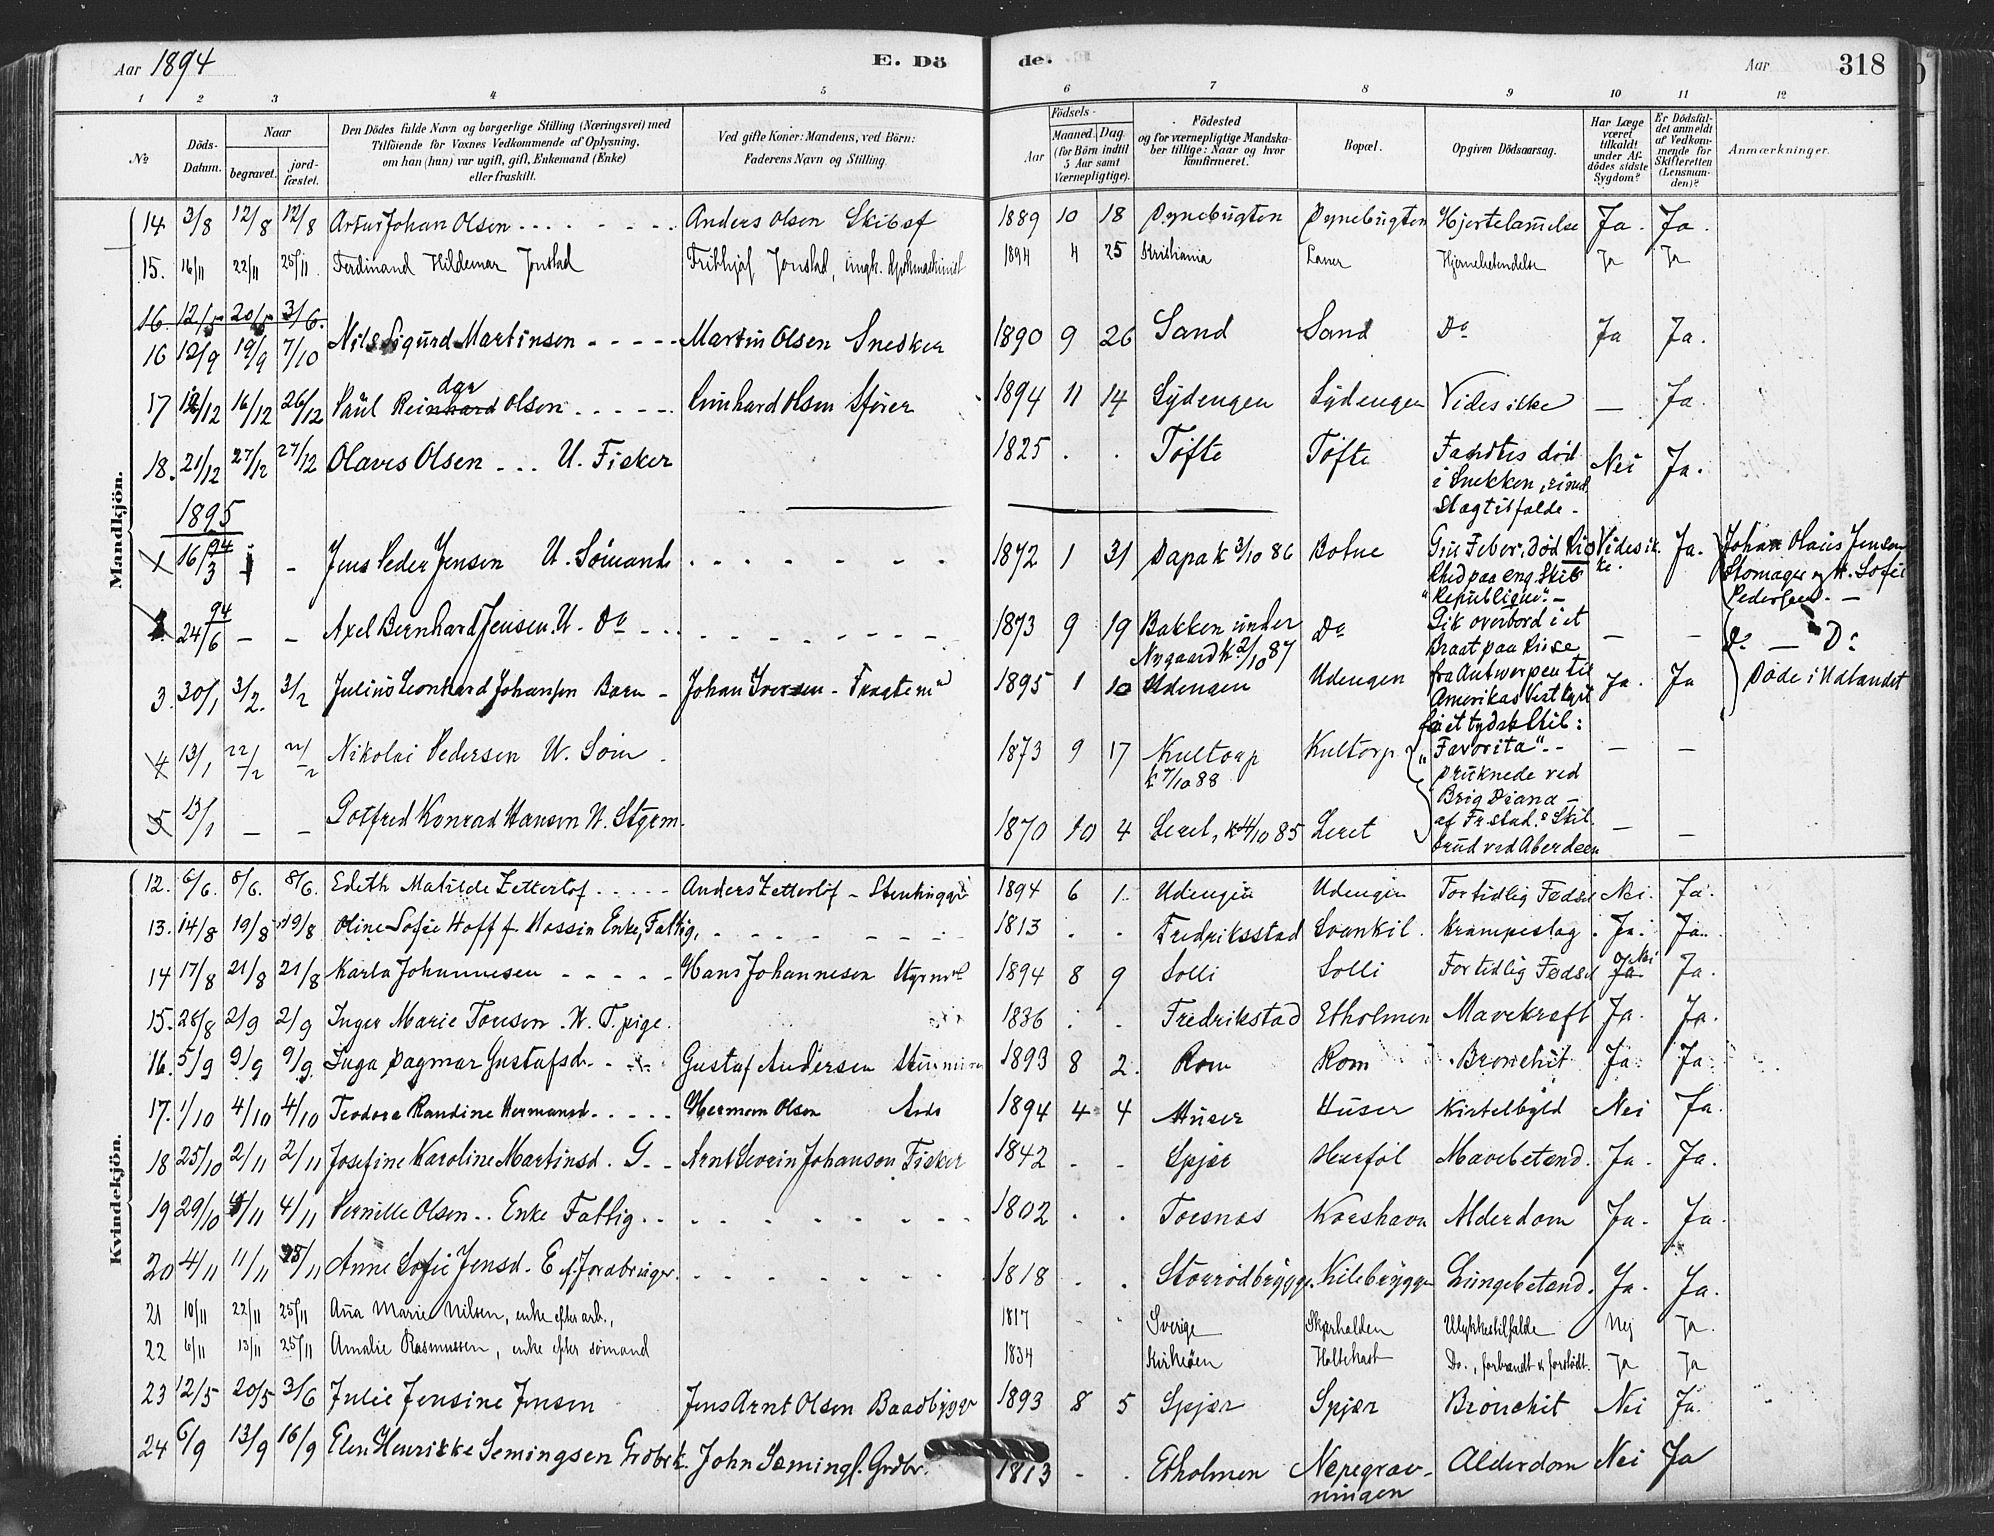 Aar 1894 E. Dö de. Aar 318
1 2 3 4 5 6 7 8 9 10 11 12
№ Döds-Datum. Naar begravet. jord-fæstet. Den Dödes fulde Navn og borgerlige Stilling (Næringsvei) med Tilföiende for Voxnes Vedkommende af Oplysning, om han (hun) var ugift, gift, Enkemand (Enke) eller fraskilt. Ved gifte Koner: Mandens, ved Börn: Faderens Navn og Stilling. Födsels- Aar Maaned. Dag. (for Börn indtil 5 Aar samt Værnepligtige). Födested og for værnepligtige Mandskaber tillige: Naar og hvor konfirmeret. Bopæl. Opgiven Dödsaarsag. Har Læge været tilkaldt under Afdödes sidste Sygdom? Er Dödsfaldet anmeldt af Vedkommende for Skifteretten (Lensmanden)? Anmærkninger.
Mandkjön.
14. 3/8 12/8 12/8 Artur Johan Olsen Anders Olsen Skibsf 1889 10 18 Dynebugten Dynebugten Hjertelamelse Ja. Ja.
15. 16/11 22/11 25/11 Ferdinand Hildemar Jonstad Frithjof Jonstad, 1894 4 25 Kristiania Lauer Hjernebetendelse Ja Ja
16. 12/5 20/5 3/6.
16 12/9 19/9 7/10 Nils Sigurd Martinsen Martin Olsen Snedker 1890 9 26 Sand Sand Do Ja Ja.
17 12/12 16/12 26/12 Paul Reinhard dar Olsen Leinhard Olsen Sfører 1894 11 14 Lydengen Lydengen Vides ikke — Ja.
18. 21/12 27/12 27/12 Olaves Olsen U. Fisker 1825 Tofte Tofte Fandtes død Nei Ja.
i Snekken, rimel.
Slagtilfalde -
1895
1 16/3 94 - Jens Peder Jensen U. Sømand 1872 1 31 Papa k 3/10 86 Botne Gul Feber. Død Rio Vides ikke. Ja. Johan Olaus Jensen
Rhed paa eng. Skib
"Republique". — Pedersen. —
2. 24/6 94 — - Axel Bernhard Jensen. U. Do 1873 9 19 Bakken under Do Gik overbord i et — — Do — Do
Nygaard k 2/10 87 Braat paa Reise
3. 30/1 3/2. 3/2 Julius Leonhard Johansen Barn - Johan Iversen - Fragtemd 1895 1 10 Udengen Udengen fra Antwerpen til Ja. Ja Døde i Udlandet
Amerikas Vestkyst
i et tydsk Skib:
4 13/1 22/2 22/2 Nikolai Pedersen U. Søm 1873 9 17 Kultorp Kultorp "Favorita". - — —
k 7/10 88 Druknede ved
5 13/1 — — Gotfred Konrad Hansen U. Styrm. 1870 10 4 Leret, k 4/10 85 Leret Brig Diana — — —
af Fr.stad. Skib.
brud ved Aberdeen
Kvindekjön.
12. 6/6. 8/6. 8/6. Edith Matilde Zetterlof Anders Zetterlof - Stenhugger 1894 6 1 Udengen Udengen For tidlig Fødsel Nei. Ja.
13. 14/8 19/8 19/8 Oline Sofie Hoff f. Mossin Enke, Fattig, 1813 Fredriksstad Svankil. Krampeslag Ja. Ja.
14 17/8 21/8 21/8 Karla Johannesen Hans Johannesen Styrmd 1894 8 9 Solli Solli For tidlig Fødsel Ja Nei Ja.
15. 28/8 2/9 2/9 Inger Marie Tonsen. U. T. pige. 1836 Fredrikstad Etholmen Mavekræft Ja. Ja.
16. 5/9 9/9 9/9. Inga Dagmar Gustafsd. Gustaf Andersen 1893 8 2. Rom Rom Bronchit Ja. Ja.
17. 1/10 4/10 4/10 Teodora Randine Hermansd. Herman Olsen Arb 1894 4 4 Huser Huser Kirtelbyld Nei Ja.
18 25/10 2/11 2/11 Josefine Karoline Martinsd. G. Arnt Severin Johanson Fisker 1842 Spjær Herføl Mavebetænd. Ja. Ja.
19 29/10 4/11 4/11 Pernille Olsen Enke Fattig 1802 Torsnæs Korshavn Alderdom Ja. Ja.
20 4/11 11/11 25/11 Anne Sofie Jensd. E. ef. Jordbruger. 1818 Storrødbrygge. Kilebrygge Lungebetænd. Ja. Ja.
21 10/11 22/11 25/11 Ana Marie Nilsen, enke efter arb., 1817 Sverige Skjærhalden Ulykkestilfælde Nej Ja.
22 6/11 13/11 25/11 Amalie Rasmussen, enke efter sømand 1834 Kirkeöen Holtekast Do., forbrandt & forstødt. Ja Ja
23 12/5 20/5 3/6 Julie Jensine Jensen Jens Arnt Olsen Baadbygger 1893 8 5 Spjær Spjær Bronchit Nei Ja.
24 6/9 13/9 16/9 Elen Henrikke Semingsen Grdbrk. John Semingf. Grdbr. 1813 Etholmen Nepegrav- Alderdom Nei Ja
ningen